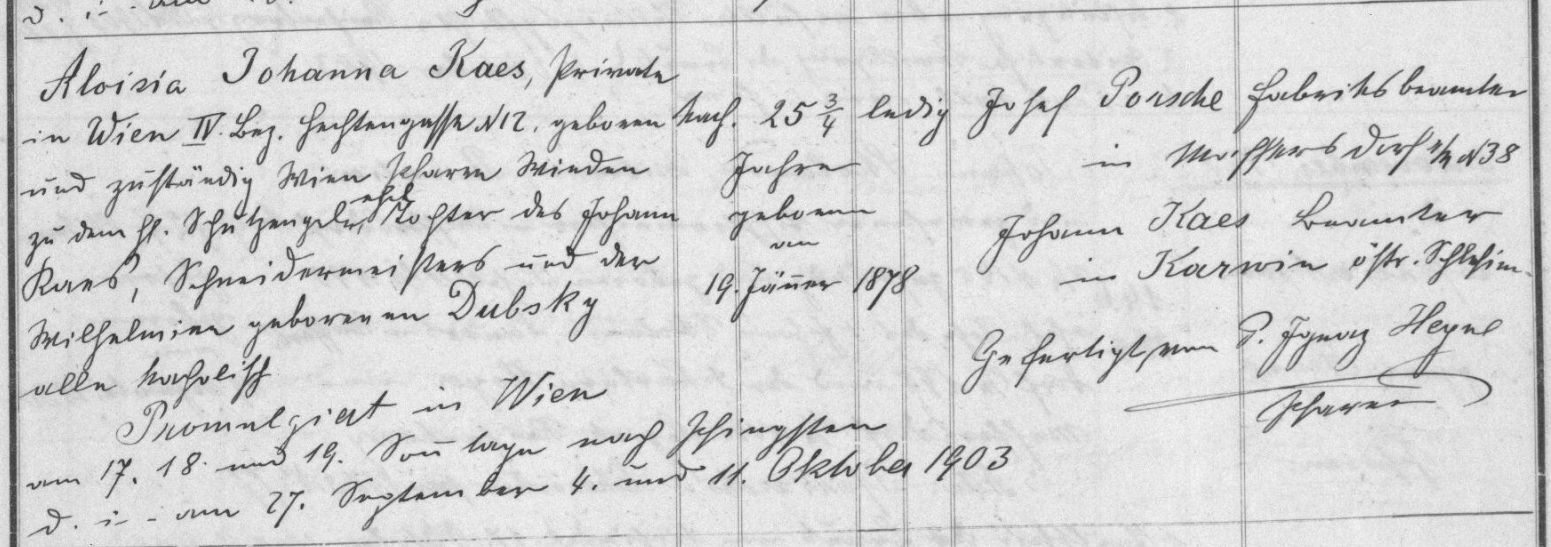 d. i. am
Aloisia Johanna Kaes, Private
in Wien IV. Bez. Hechtengasse N 12. geboren
und zuständig Wien Pfarre Wieden
zu den hl. Schutzengeln, ehel. Tochter des Johann
Kaes, Schneidermeisters und der
Wilhelmine geborenen Dubsky
alle katholisch
Promulgirt in Wien
am 17. 18. und 19. Sonntage nach Pfingsten
d. i. am 27. September 4. und 11. Oktober 1903
kath.
25 3/4
Jahre
geboren
am
19. Jänner 1878
ledig
Josef Porsche Fabriksbeamter
in Maffersdorf N 38
Johann Kaes Beamter
in Karwin östr. Schlesien
Gefertigt von P. Ignaz
Pfarrer